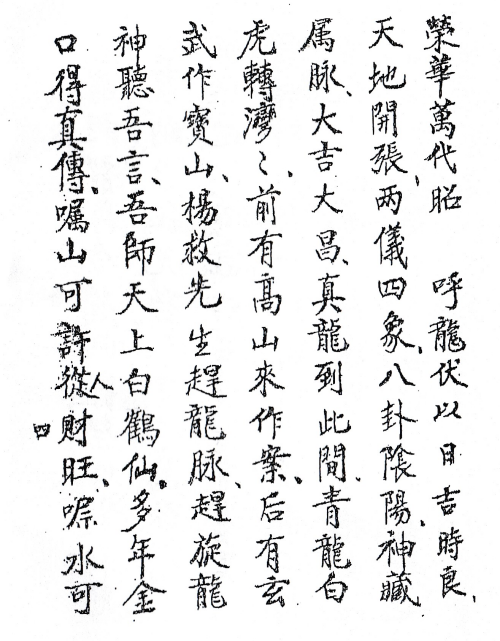 榮華萬代昭　呼龍伏以日吉時良、
天地開張、两儀四象、八卦陰陽、神藏
属脉、大吉大昌、真龍到此間、青龍白
虎轉灣〻、前有高山來作案、后有玄
武作寳山、楊救先生趕龍脉、趕旋龍
神聽吾言、吾師天上白鶴仙。多年金
口得真傳、嘱山可許從人财旺、嘹水可
四